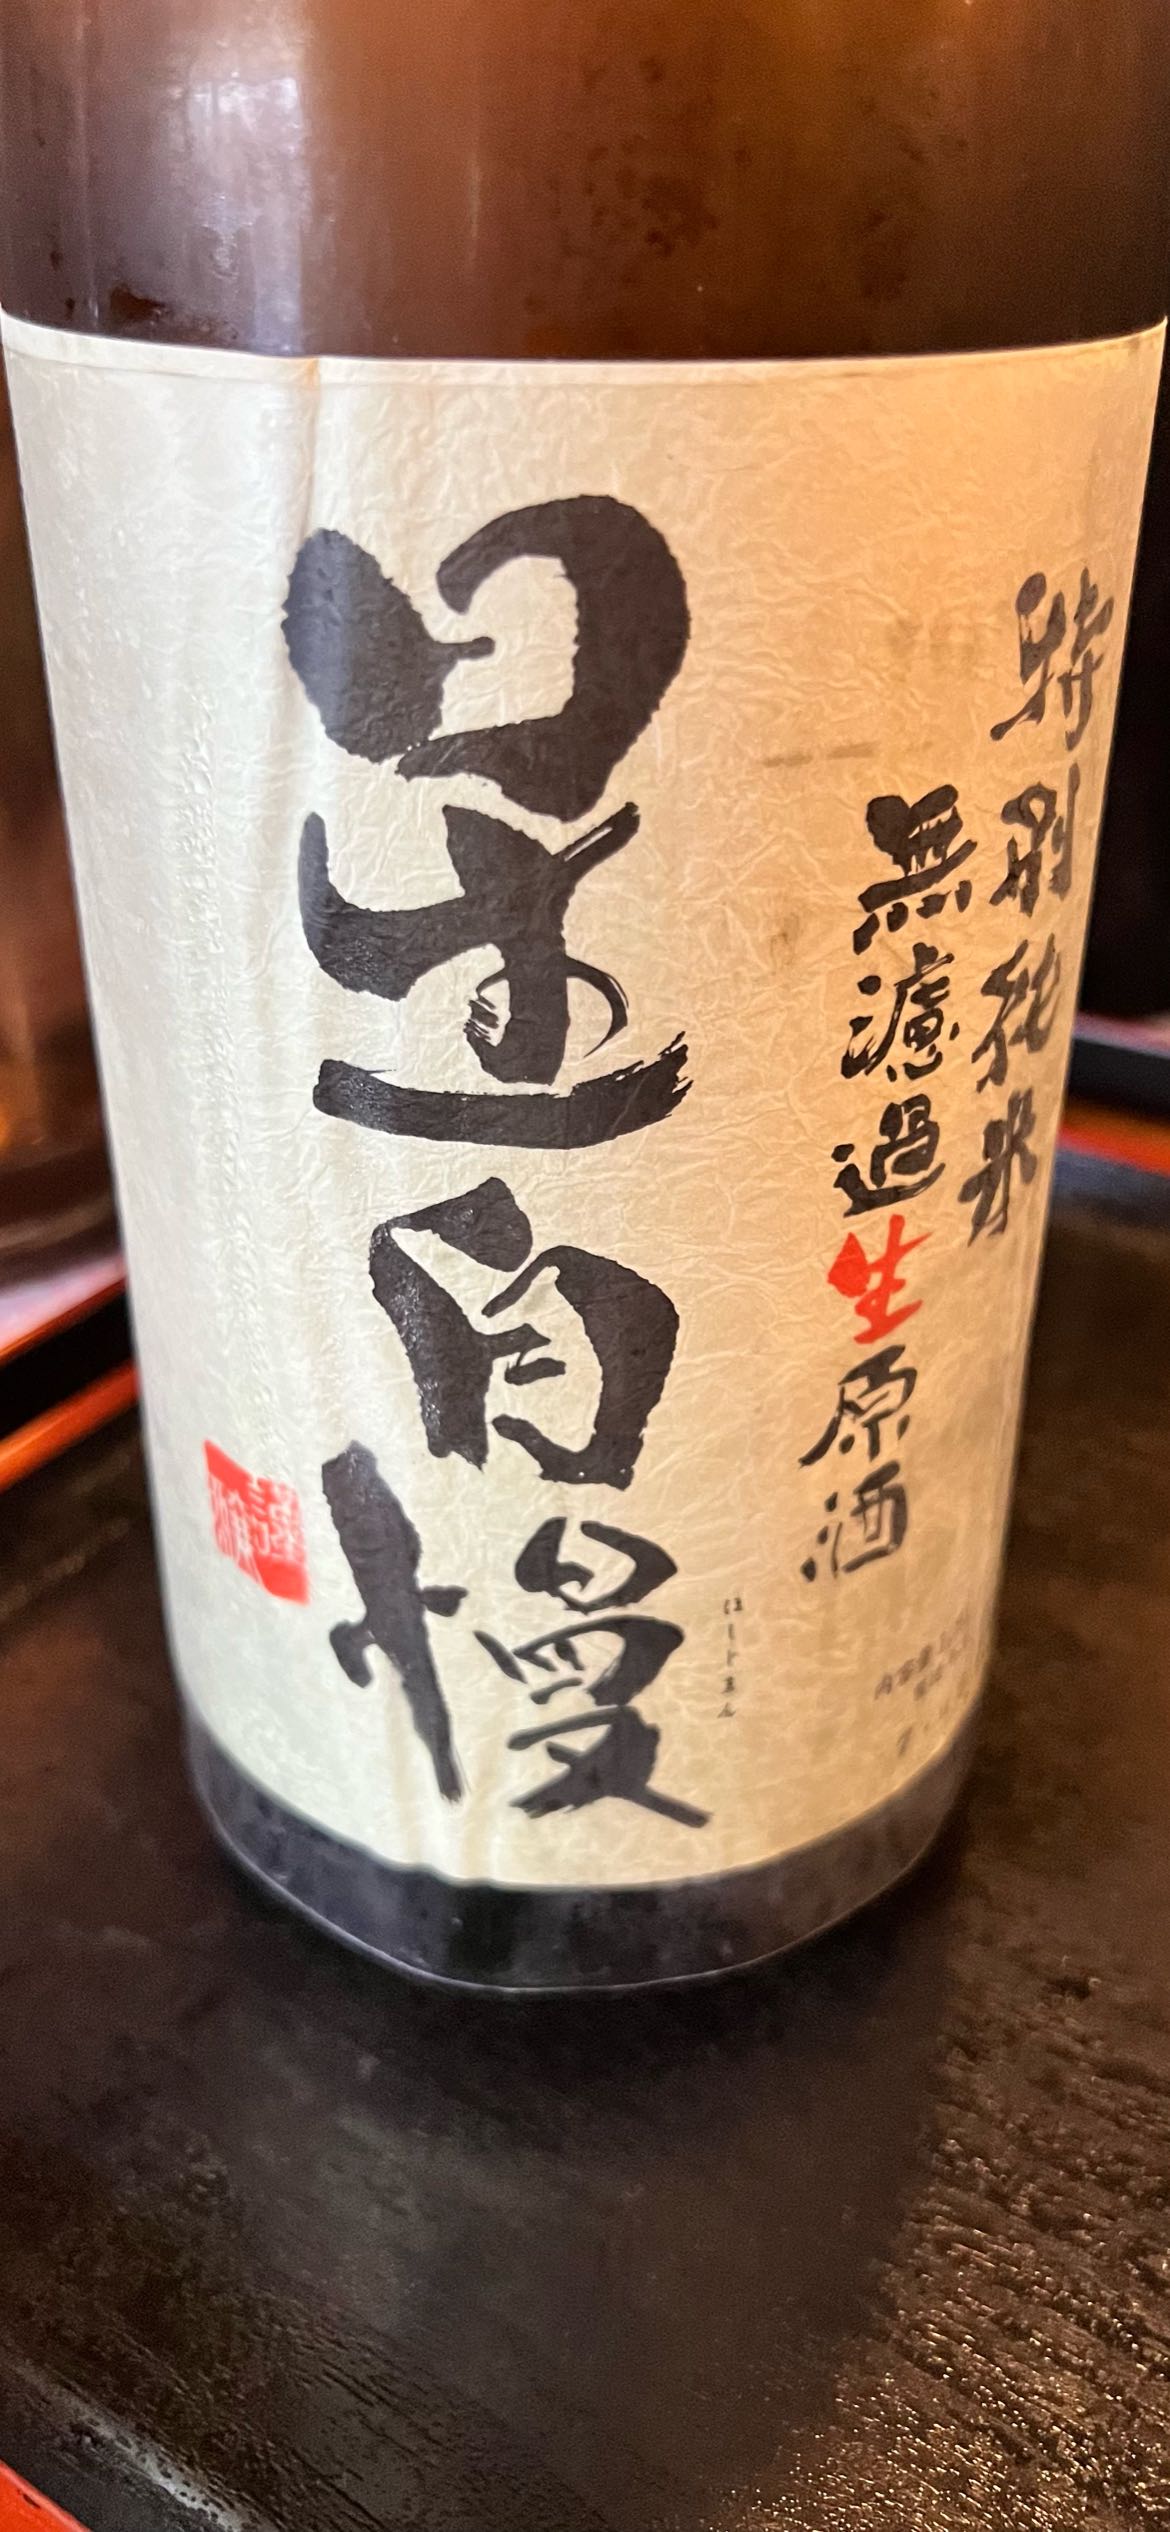 特別純米
無濾過生原酒
星自慢
ほしじまん
内容量